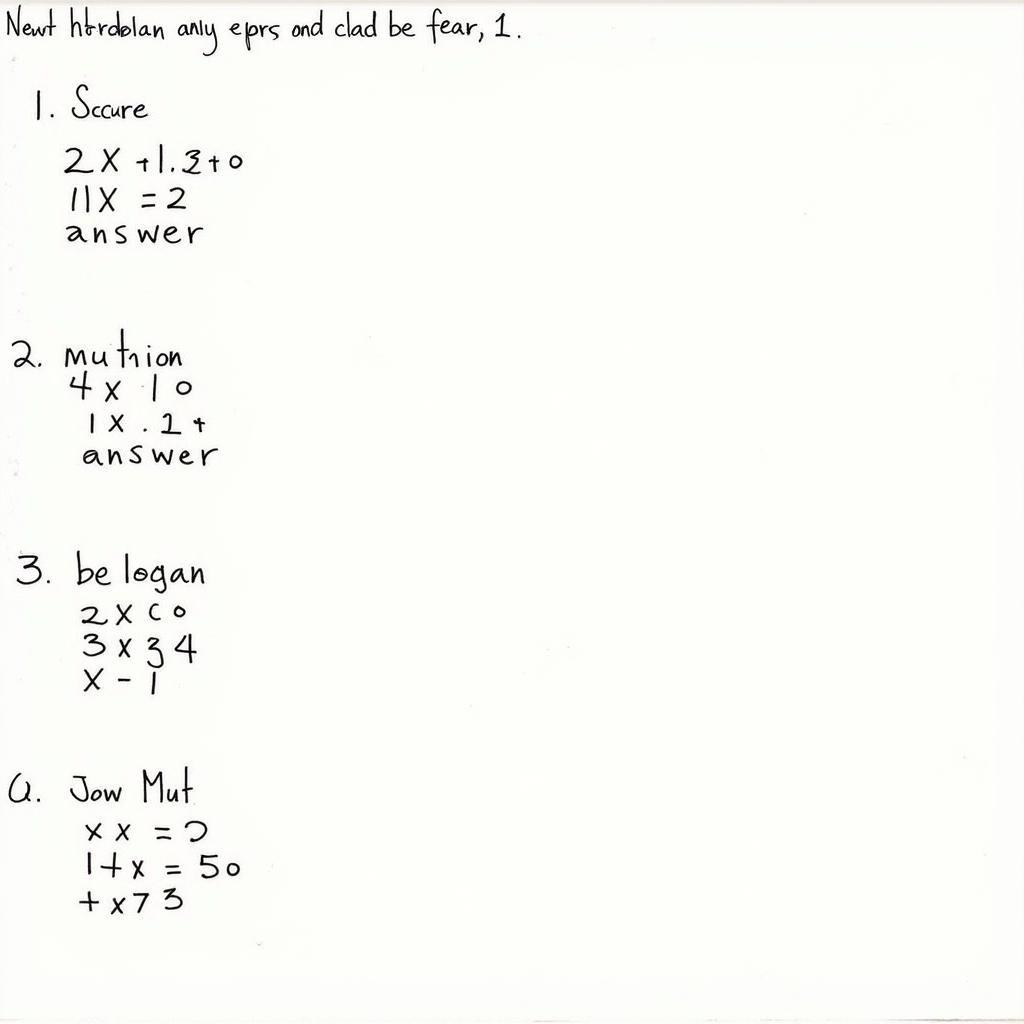 Newt htrdolan anly eprs ond clad be fear, 1.
1. Sccure
2X +1.3+0
11X = 2
answer
2. mutnion
4 x 10
1 X . 1 +
answer
3. be logan
2 X C 0
3 x 3 4
X - 1
a. Jow Mut
x x =
1+x = 50
+ x 7 3